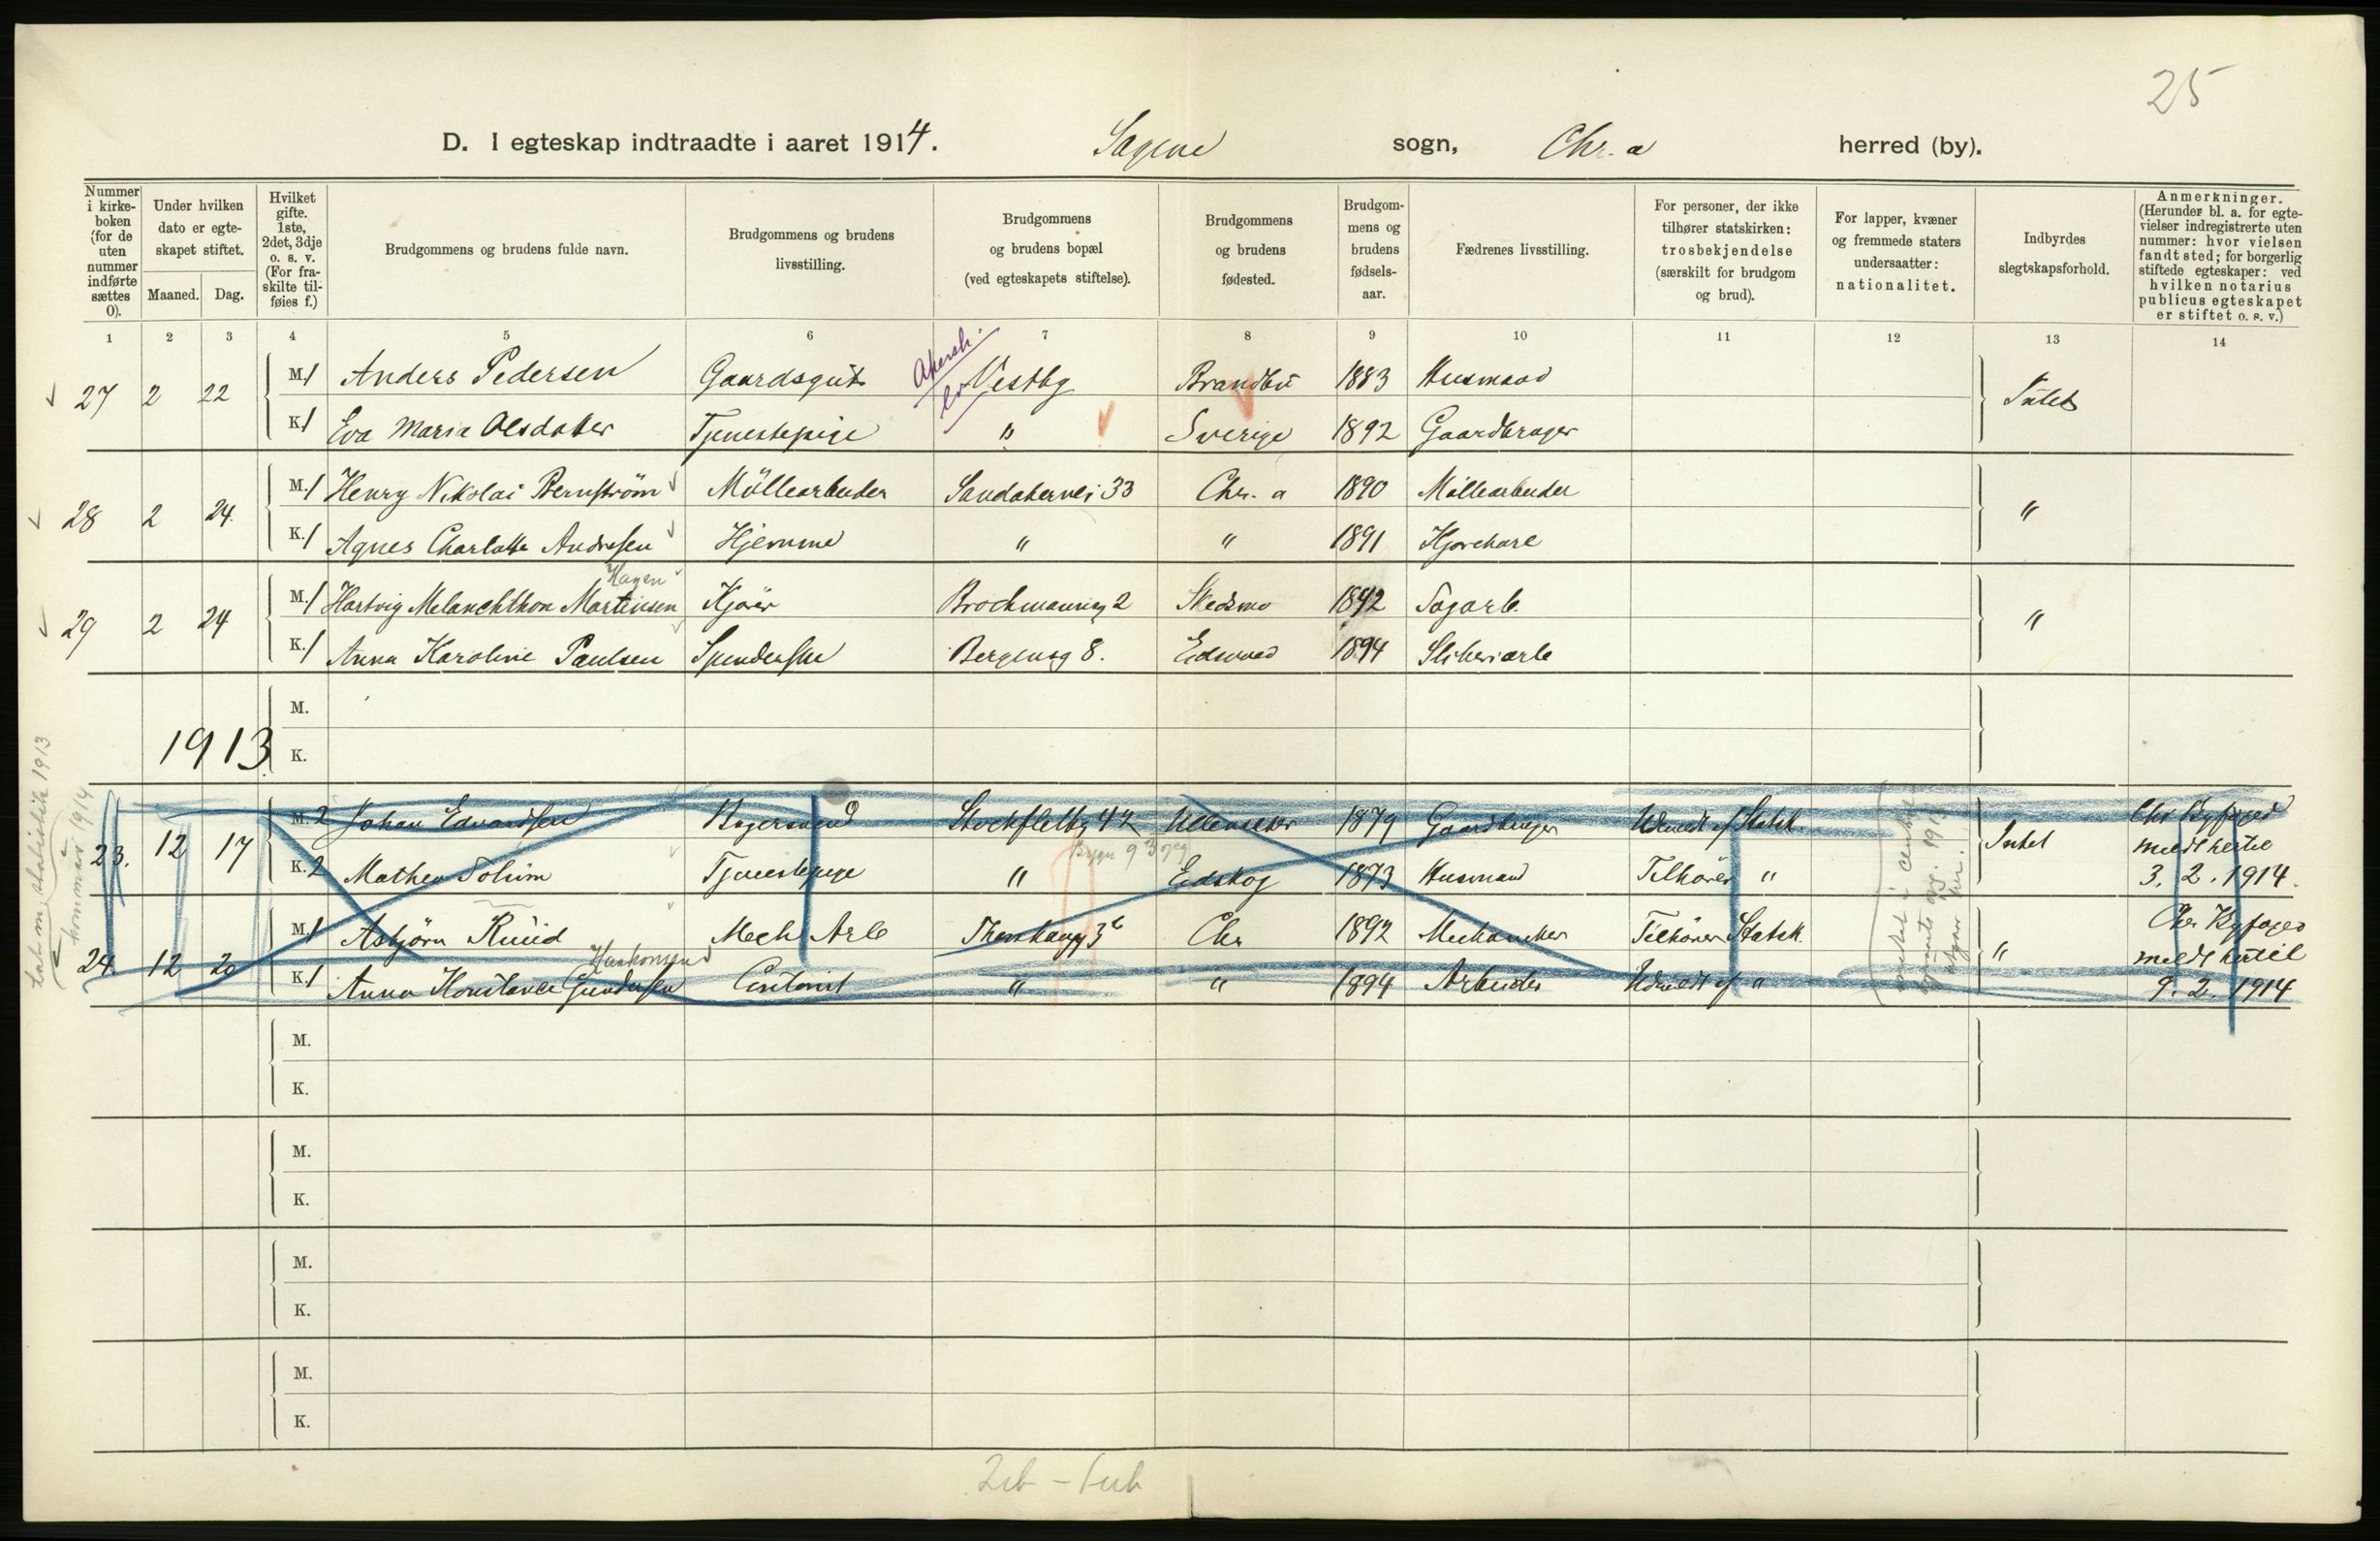 25
D. I egteskap indtraadte i aaret 1914. Sagene sogn, Chr. a herred (by).
Nummer i kirkeboken (for de uten nummer indførte sættes 0).
Under hvilken dato er egteskapet stiftet.
Maaned. Dag.
Hvilket gifte. 1ste, 2det, 3dje o. s. v. (For fraskilte tilføies f.)
Brudgommens og brudens fulde navn.
Brudgommens og brudens livsstilling.
Brudgommens og brudens bopæl (ved egteskapets stiftelse).
Brudgommens og brudens fødested.
Brudgommens og brudens fødselsaar.
Fædrenes livsstilling.
For personer, der ikke tilhører statskirken: trosbekjendelse (særskilt for brudgom og brud).
For lapper, kvæner og fremmede staters undersaatter: nationalitet.
Indbyrdes slegtskapsforhold.
Anmerkninger. (Herunder bl. a. for egtevielser indregistrerte uten nummer: hvor vielsen fandt sted; for borgerlig stiftede egteskaper: ved hvilken notarius publicus egteskapet er stiftet o. s. v.)
1 2 3 4 5 6 7 8 9 10 11 12 13 14
27 2 22 M. 1 Anders Pedersen Gaardsgut Vestby Brandbu 1883 Husmand Intet
K. 1 Eva Maria Olsdatter Tjenestepige " Sverige 1892 Gaardbruger
28 2 24 M. 1 Henry Nikolai Bernström Möllearbeider Sandakervei 33 Chr. a 1890 Möllearbeider "
K. 1 Agnes Charlotte Andresen Hjemme " " 1891 Kjørekarl
Hagen
29 2 24 M. 1 Hartvig Melanchthon Martinsen Kjører Brochmannsg 2 Skedsmo 1892 Sagarb. "
K. 1 Anna Karoline Paulsen Bergensg 8. Eidsvold 1894
M.
1913 K.
23. 12 17 M. 2 Johan Edvardsen Stockfletsg 42 Ullensaker 1879 Gaardbruger Udmeldt af Statsk. Intet Chr Byfoged meldt hertil 3. 2. 1914.
K. 2 Mathea Solum Tjenestepige " Eidskog 1873 Husmand Tilhører "
24. 12 20 M. 1 Asbjörn Ruud Mech Arb Chr 1892 Mechaniker Tilhører Statsk. " Chr Byfoged meldt hertil 9. 2. 1914
Haakonsen
K. 1 Anna Konstance Gundersen " " 1894 Arbeider Udmeldt af "
M.
K.
M.
K.
M.
K.
M.
K.